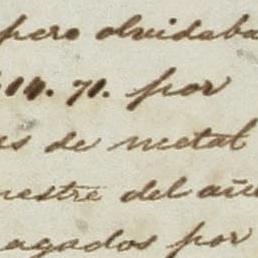 pero olvidaba
14. 71. por
es de metal
mestre del añ
agados por